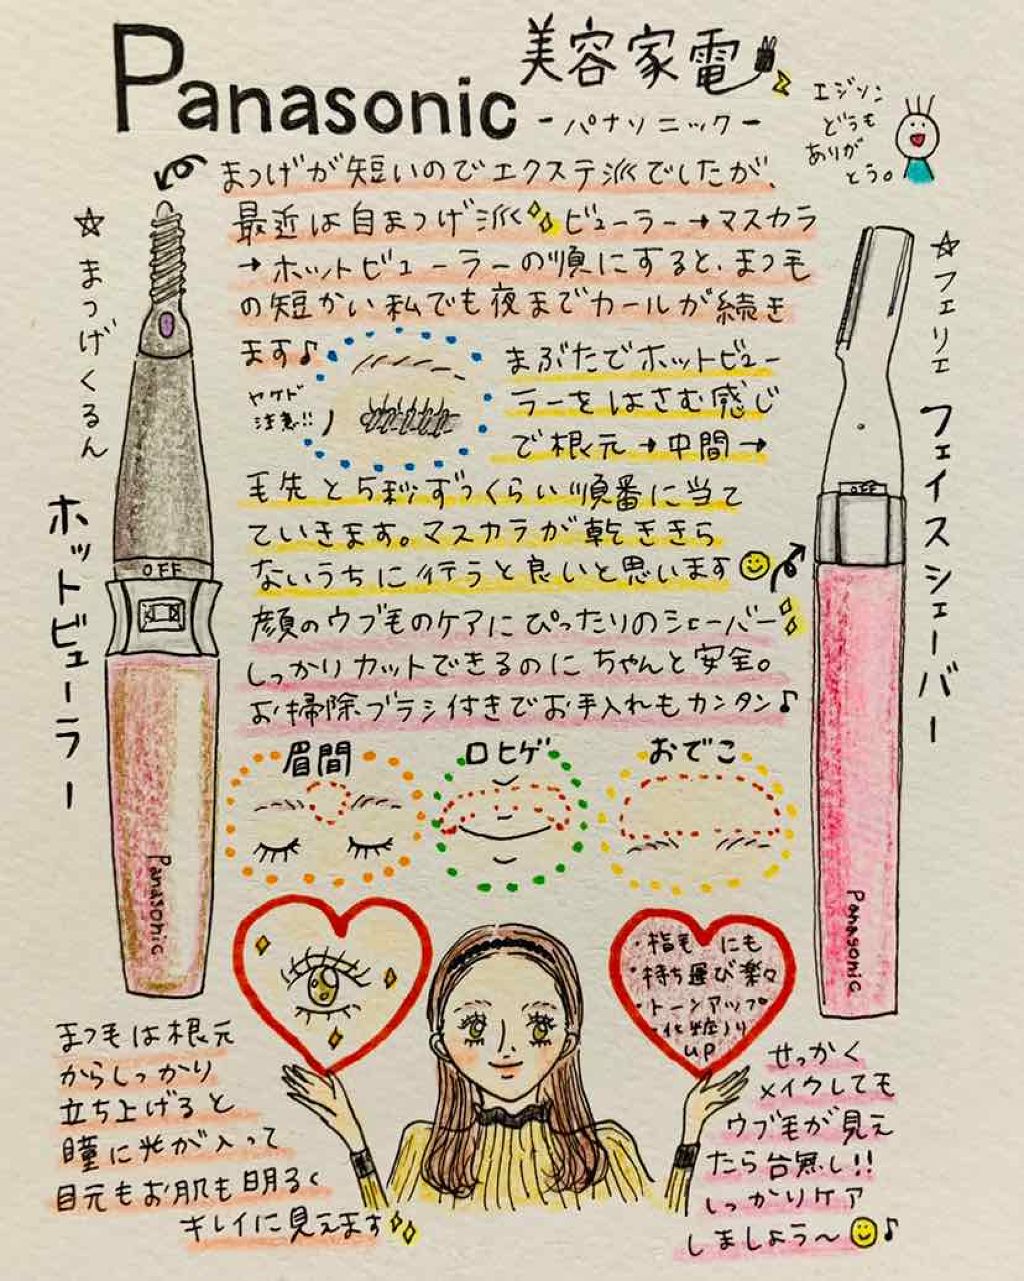 Panasonic
美容家電
-パナソニック-
エジソン
どうも
ありが
とう。
まつげが短いのでエクステ派でしたが、
最近は自まつげ派く ビューラー→マスカラ
→ホットビューラーの順にすると、まつ毛
の短かい私でも夜までカールが続き
ます♪
☆まつげくるん
ホットビューラー
ヤケド
注意!!
まぶたでホットビュー
ラーをはさむ感じ
で根元→中間→
毛先と5秒ずつくらい順番に当て
ていきます。マスカラが乾ききら
ないうちに行うと良いと思います
☆フェリエ
フェイスシェーバー
顔のウブ毛のケアにぴったりのシェーバー
しっかりカットできるのにちゃんと安全。
お掃除ブラシ付きでお手入れもカンタン♪
OFF
OFF
眉間
口ヒゲ
おでこ
Panasonic
Panasonic
・指毛にも
・持ち運び楽々
・トーンアップ
・化粧ノリ
UP
まつ毛は根元
からしっかり
立ち上げると
瞳に光が入って
目元もお肌も明るく
キレイに見えます
せっかく
メイクしても
ウブ毛が見え
たら台無し!!
しっかりケア
しましょう〜♪